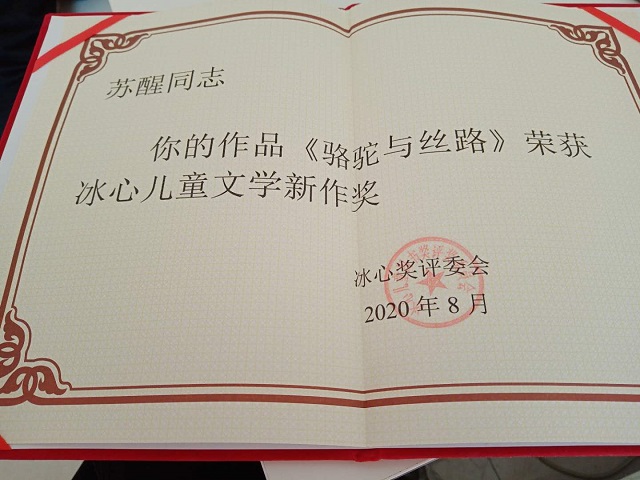 苏醒同志
你的作品《骆驼与丝路》荣获
冰心儿童文学新作奖
冰心奖评委会
2020 年 8 月